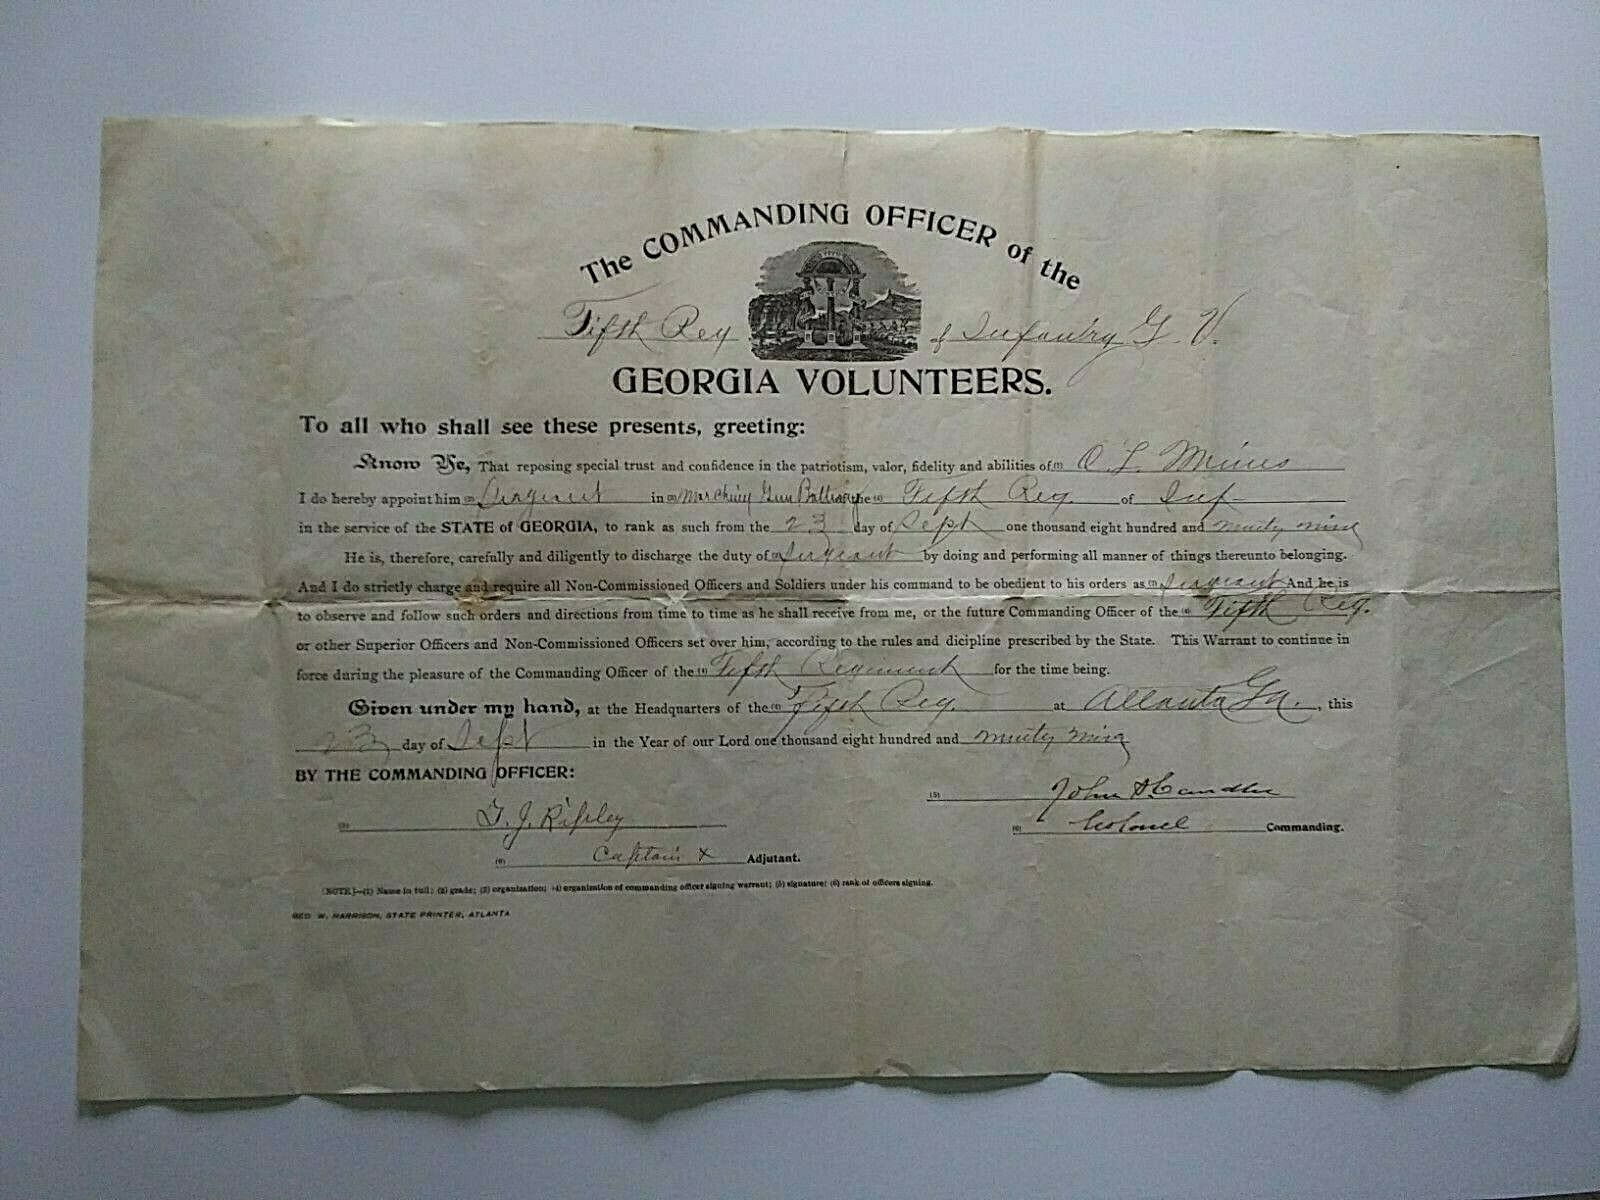 The COMMANDING OFFICER of the
Fifth Reg of Infantry G. V.
GEORGIA VOLUNTEERS.
To all who shall see these presents, greeting:
Know Ye, That reposing special trust and confidence in the patriotism, valor, fidelity and abilities of (1) O. L. Mines
I do hereby appoint him (2) Sergeant in (3) Gun Battery (4) Fifth Reg. of Inf
in the service of the STATE of GEORGIA, to rank as such from the 23 day of Sept one thousand eight hundred and ninety nine
He is, therefore, carefully and diligently to discharge the duty of (2) Sergeant by doing and performing all manner of things thereunto belonging.
And I do strictly charge and require all Non-Commissioned Officers and Soldiers under his command to be obedient to his orders as (2) Sergeant And he is
to observe and follow such orders and directions from time to time as he shall receive from me, or the future Commanding Officer of the (4) Fifth Reg.
or other Superior Officers and Non-Commissioned Officers set over him, according to the rules and dicipline prescribed by the State. This Warrant to continue in
force during the pleasure of the Commanding Officer of the (4) Fifth Regiment for the time being.
Given under my hand, at the Headquarters of the (4) Fifth Reg. at Atlanta Ga., this
23 day of Sept in the Year of our Lord one thousand eight hundred and ninety nine
BY THE COMMANDING OFFICER:
(5) John S Candler
(5) T. J. Ripley
(6) Colonel Commanding.
(6) Captain & Adjutant.
[NOTE]—(1) Name in full; (2) grade; (3) organization; (4) organization of commanding officer signing warrant; (5) signature; (6) rank of officers signing.
GEO W. HARRISON, STATE PRINTER, ATLANTA